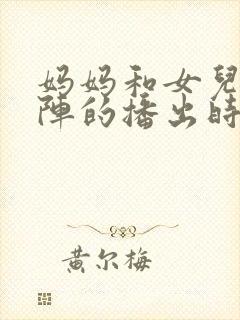 妈妈和女兒
陣的播出時
黄尔梅